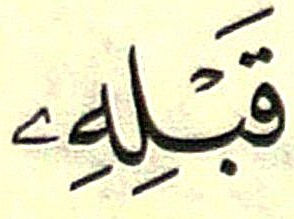 قَبْلِهِۦ